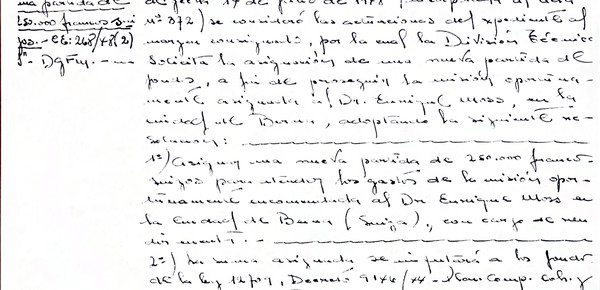 una partida de
250.000 francos sui
zos.- CE: 268/48 (2)
de fecha 14 de junio de 1948
nº 372) se consideró las actuaciones del expediente al
margen consignado, por la cual la División Técnica
solicita la asignación de una nueva partida de
fondos, a fin de proseguir la misión oportuna-
mente asignada al Dr. Enrique Moss, en la
ciudad de Berna, adoptando la siguiente re-
solución:
1º) Asignar una nueva partida de 250.000 francos
suizos para atender los gastos de la misión opor-
tunamente encomendada al Dr Enrique Moss en
la Ciudad de Berna (Suiza), con cargo de ren
dir cuenta.-
2º) La suma asignada se imputará a los fondos
de la ley 12.709, Decreto 9146/44.-